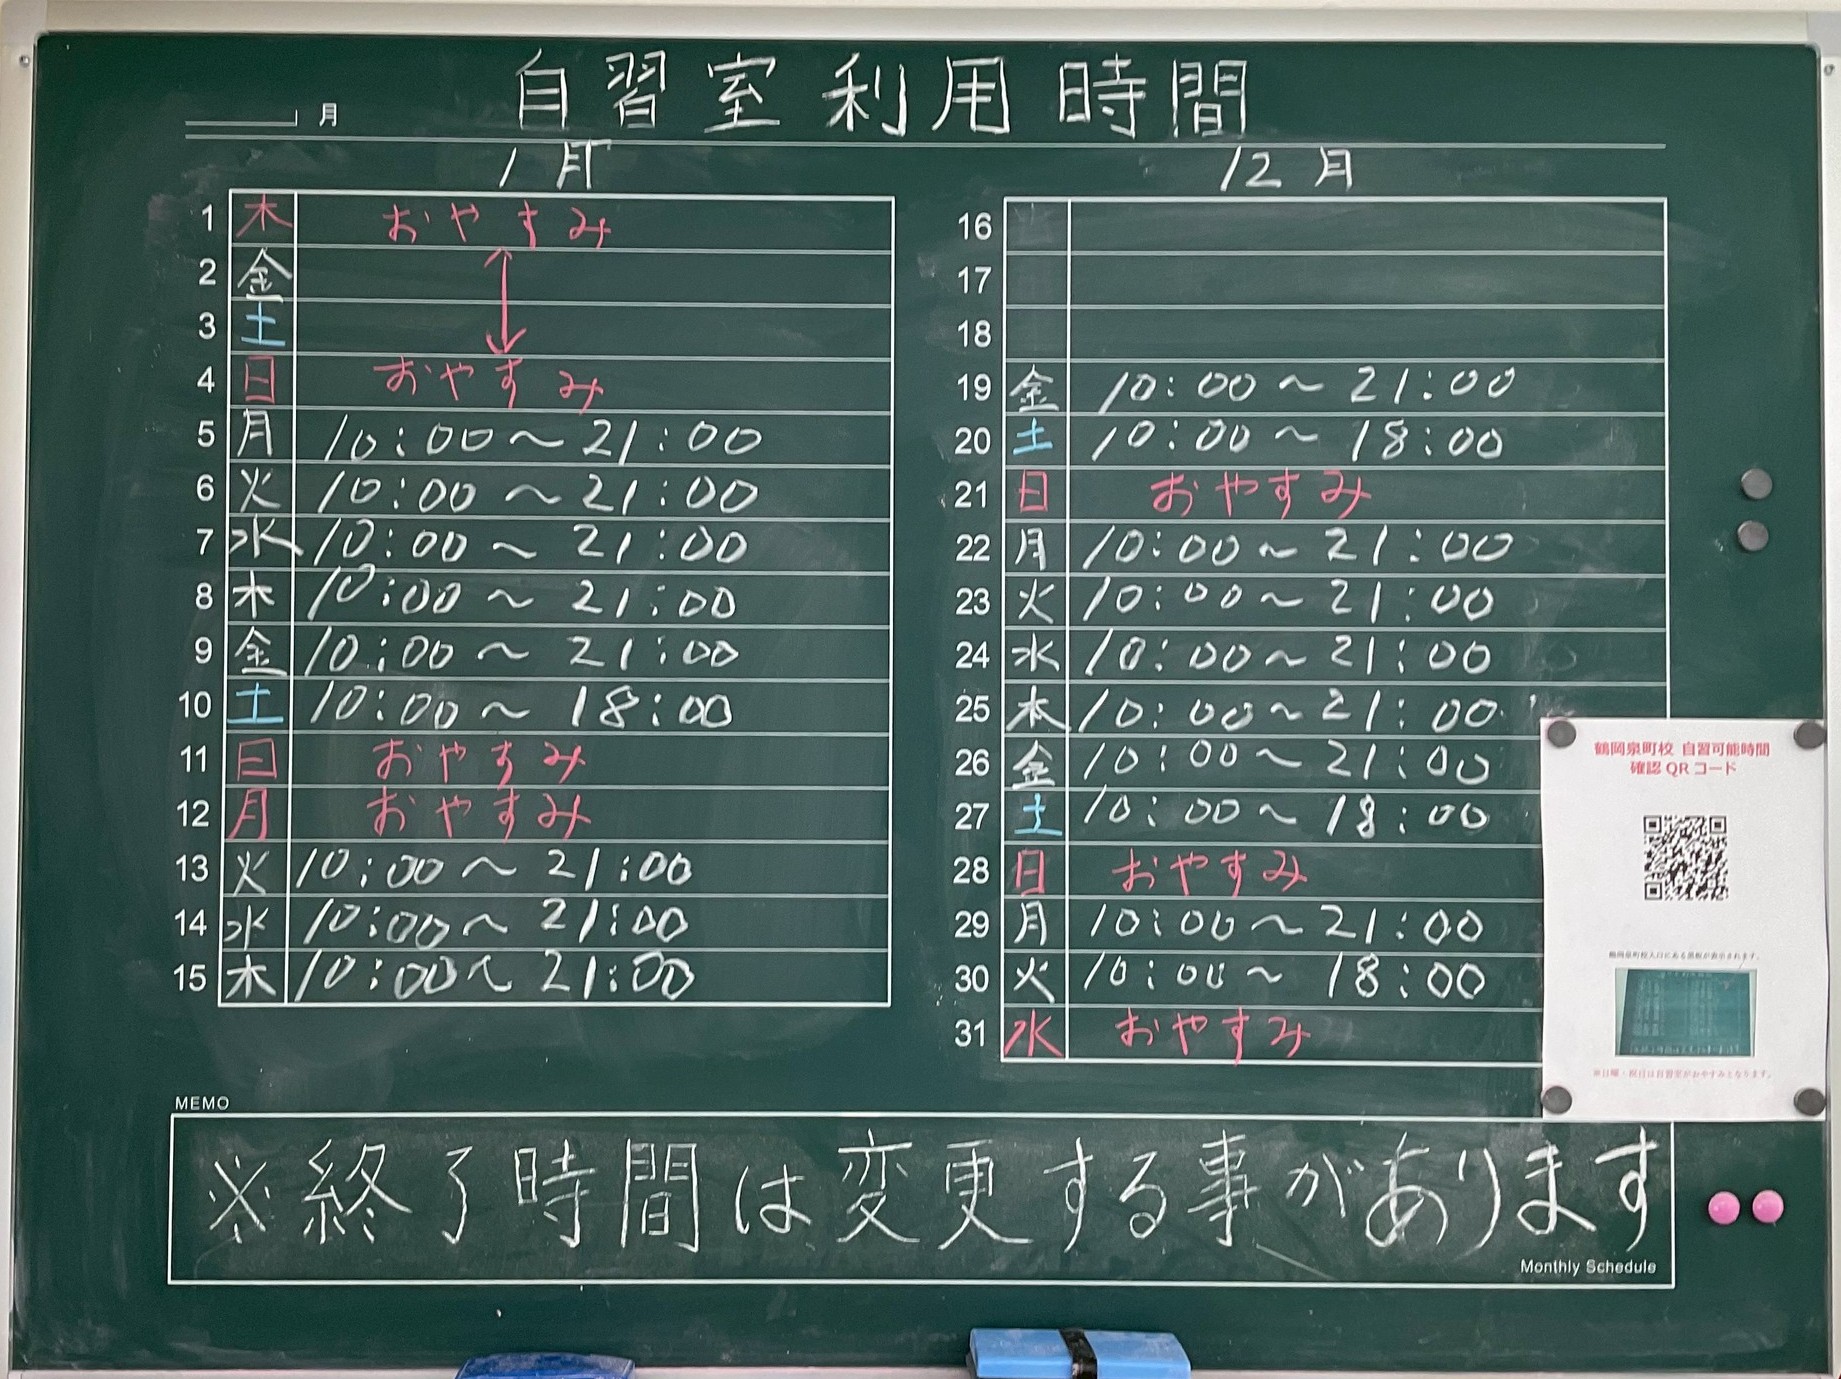 自習室利用時間
月
1月
1 木 おやすみ
2 金
3 土
4 日 おやすみ
5 月 10:00～21:00
6 火 10:00～21:00
7 水 10:00～21:00
8 木 10:00～21:00
9 金 10:00～21:00
10 土 10:00～18:00
11 日 おやすみ
12 月 おやすみ
13 火 10:00～21:00
14 水 10:00～21:00
15 木 10:00～21:00
12月
16
17
18
19 金 10:00～21:00
20 土 10:00～18:00
21 日 おやすみ
22 月 10:00～21:00
23 火 10:00～21:00
24 水 10:00～21:00
25 木 10:00～21:00
26 金 10:00～21:00
27 土 10:00～18:00
28 日 おやすみ
29 月 10:00～21:00
30 火 10:00～18:00
31 水 おやすみ
鶴岡泉町校 自習可能時間
確認QRコード
鶴岡泉町校入口にある黒板が表示されます。
※日曜・祝日は自習室がおやすみとなります。
MEMO
※終了時間は変更する事があります
Monthly Schedule